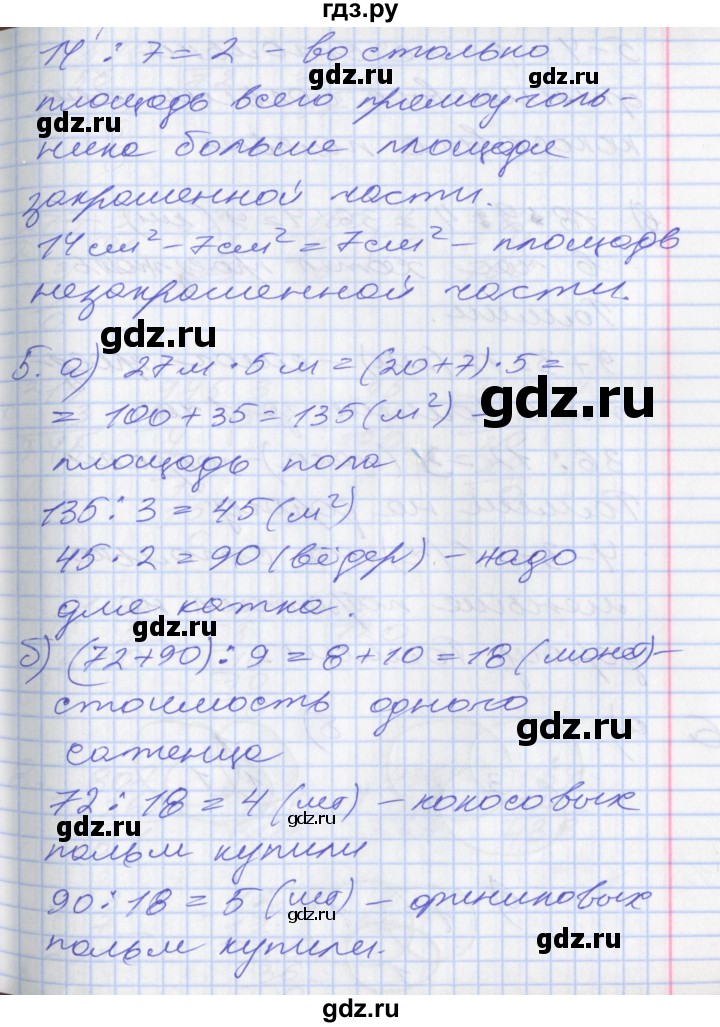 гдз.ру
14 : 7 = 2 – во столько
площадь всего прямоуголь-
gdz.ru
gdz.ru
ника больше площади
закрашенной части.
gdz.ru
gdz.ru
14см² – 7см² = 7см² – площадь
незакрашенной части.
gdz.ru
5. а) 27м · 5м = (20+7) · 5 =
= 100 + 35 = 135 (м²) –
gdz.ru
площадь пола
135 : 3 = 45 (м²)
gdz.ru
gdz.ru
45 · 2 = 90 (вёдер) – надо
для катка.
б) (72+90) : 9 = 8 + 10 = 18 (монет) –
gdz.ru
стоимость одного
gdz.ru
саженца
72 : 18 = 4 (шт) – кокосовых
gdz.ru
gdz.ru
пальм купили
90 : 18 = 5 (шт) – финиковых
gdz.ru
gdz.ru
пальм купили.
gdz.ru